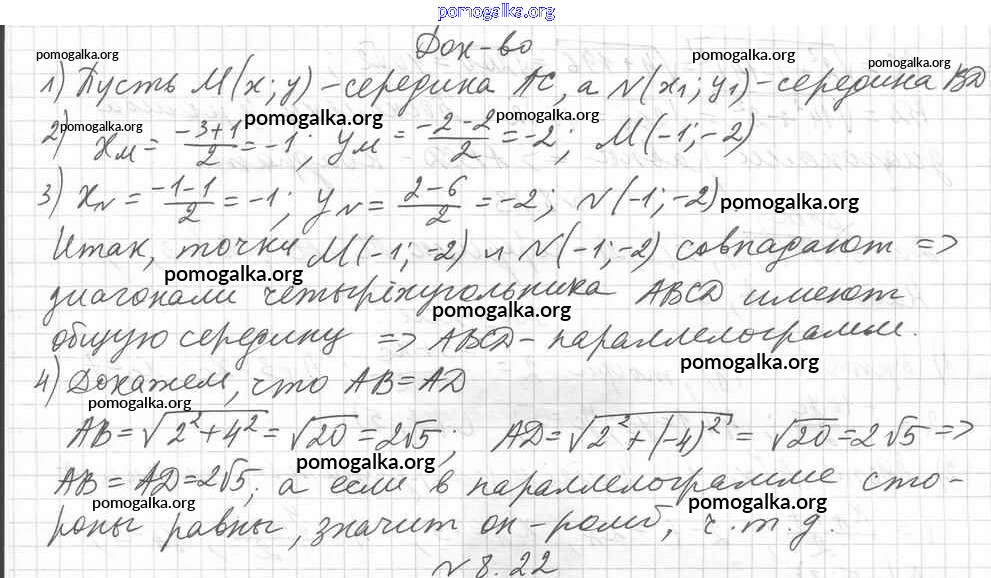 pomogalka.org
Док-во
pomogalka.org pomogalka.org pomogalka.org
1) Пусть M(x; y) – середина AC, а N(x₁; y₁) – середина BD
pomogalka.org pomogalka.org pomogalka.org
2) x_M = (-3+1)/2 = -1; y_M = (-2-2)/2 = -2; M(-1; -2)
3) x_N = (-1-1)/2 = -1; y_N = (2-6)/2 = -2; N(-1; -2)
pomogalka.org
Итак, точки M(-1; -2) и N(-1; -2) совпадают =>
pomogalka.org
диагонали четырёхугольника ABCD имеют
pomogalka.org
общую середину => ABCD – параллелограмм.
pomogalka.org
4) Докажем, что AB = AD
pomogalka.org
AB = √(2² + 4²) = √20 = 2√5; AD = √(2² + (-4)²) = √20 = 2√5 =>
pomogalka.org
AB = AD = 2√5; а если в параллелограмме сто-
pomogalka.org pomogalka.org
роны равны, значит он – ромб, ч.т.д.
№ 8.22